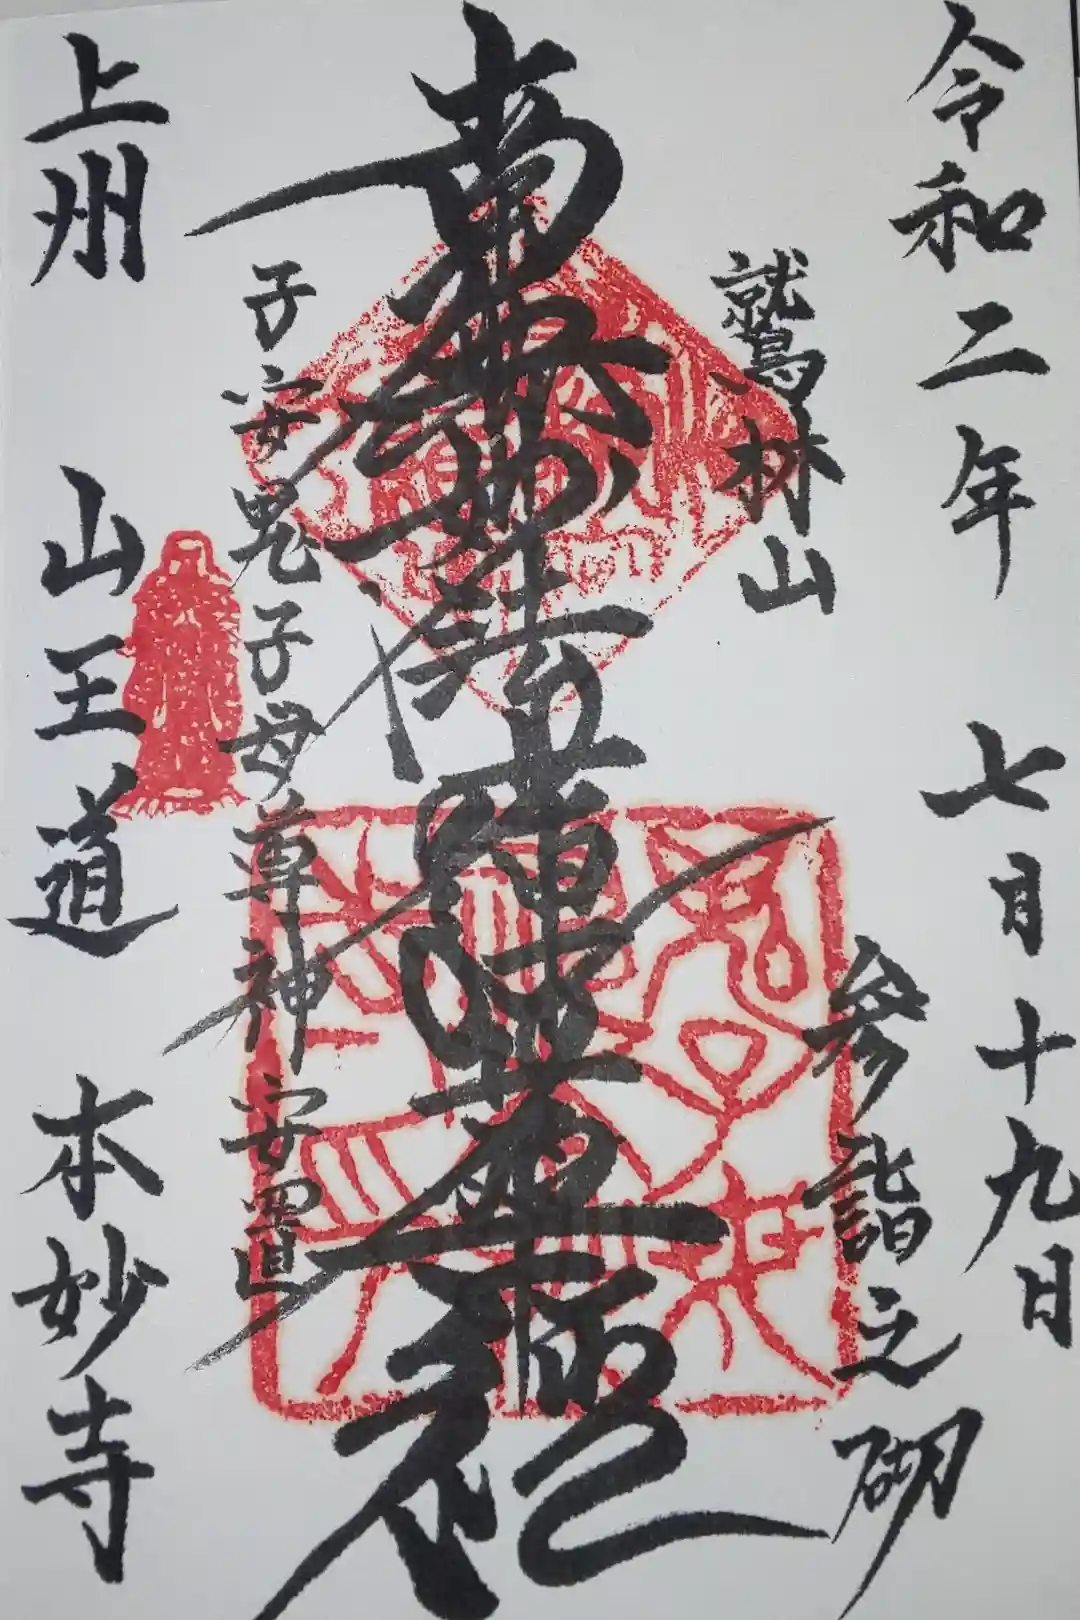 令和二年 七月十九日
参詣之砌
鷲林山
南無妙法蓮華経
子安鬼子母尊神 安置
上州 山王道 本妙寺